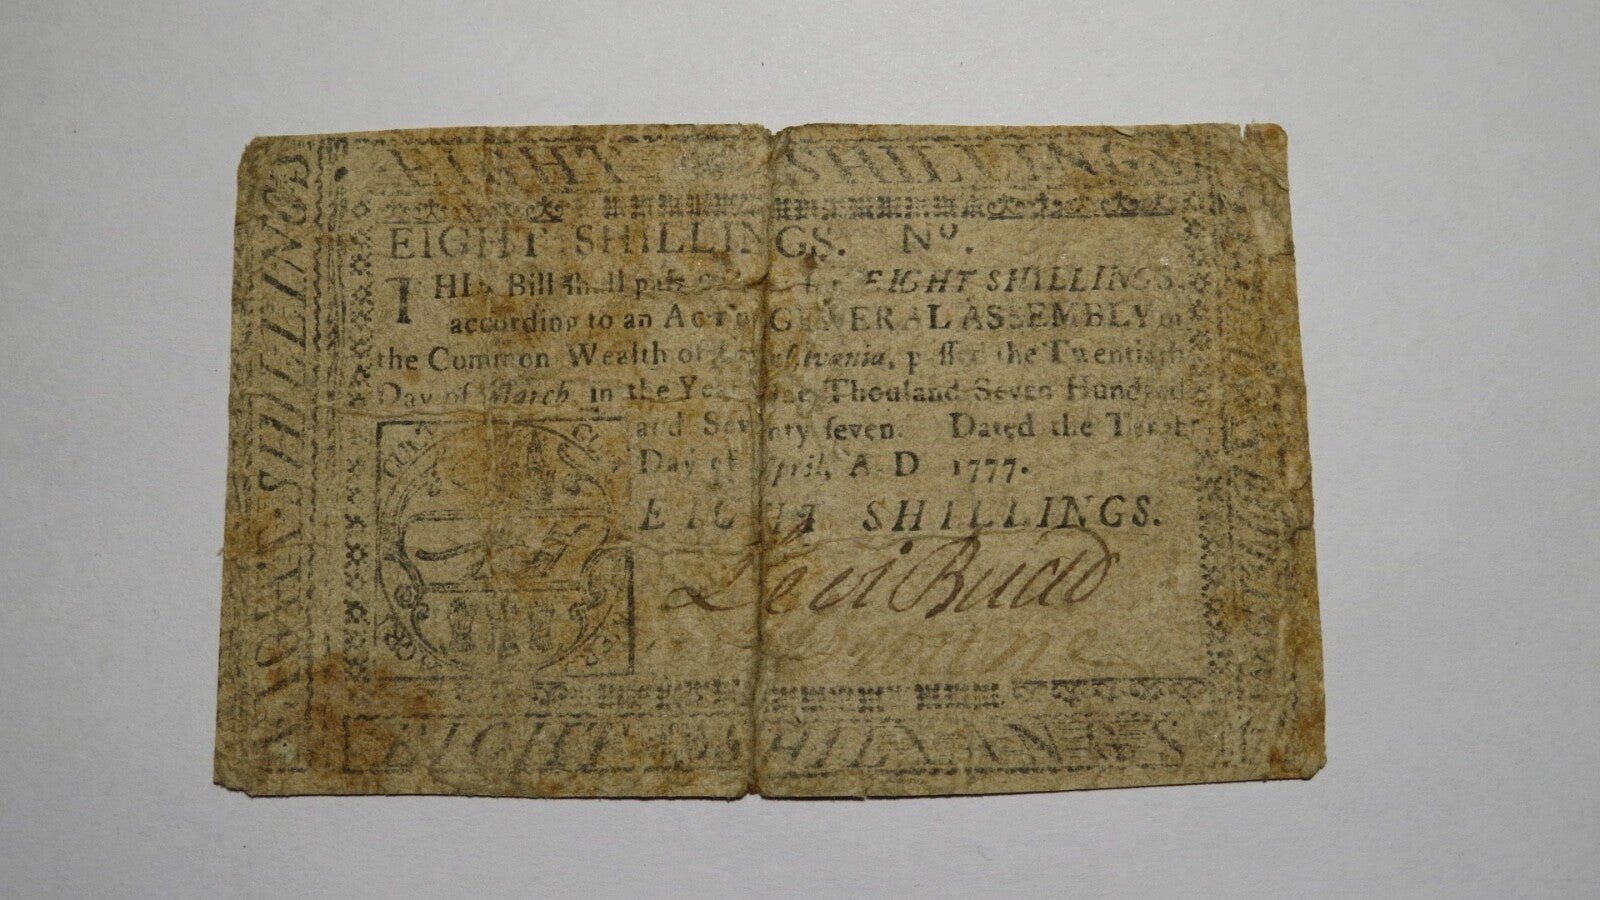 EIGHT SHILLINGS
EIGHT SHILLINGS. Nº.
THIS Bill shall pass for EIGHT SHILLINGS.
according to an ACT of GENERAL ASSEMBLY
the Common Wealth of Pennsylvania, passed the Twentieth
Day of March, in the Year One Thousand Seven Hundred
and Seventy seven. Dated the Tenth
Day of April, A D 1777.
EIGHT SHILLINGS.
Levi Budd
EIGHT SHILLINGS
SHILLINGS